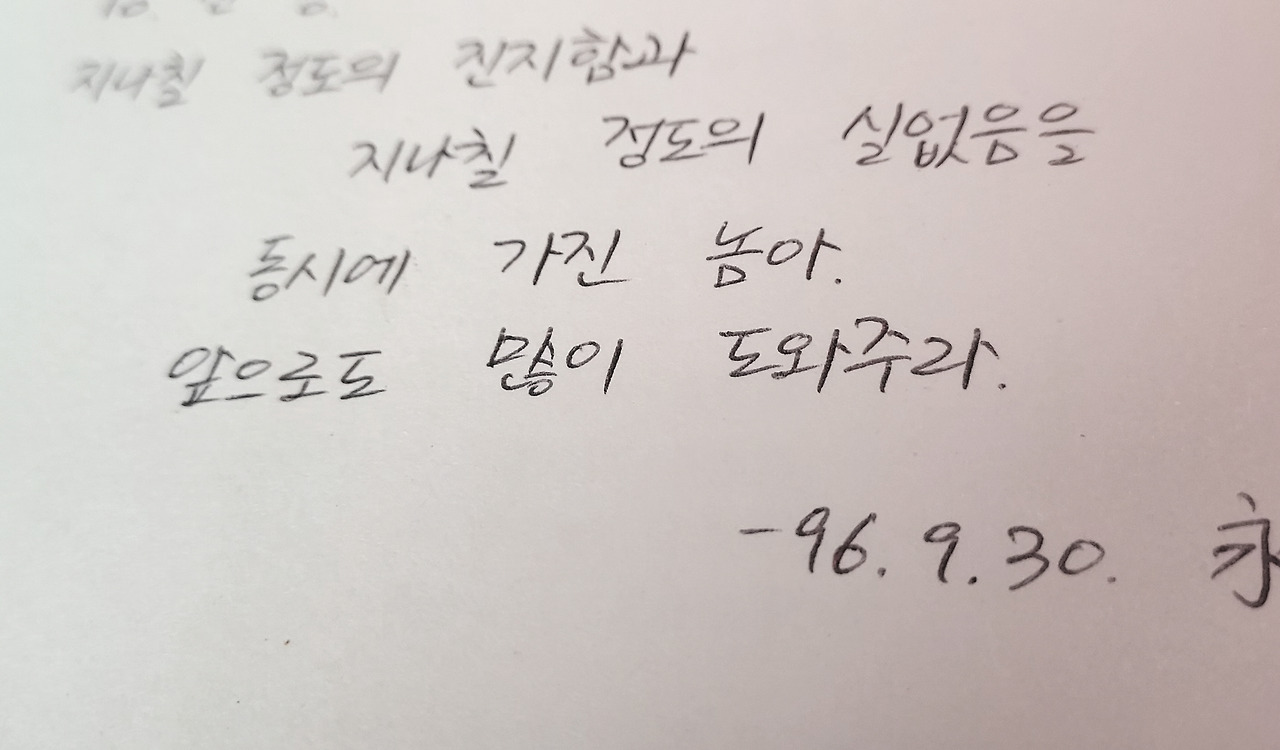 지나칠 정도의 진지함과
지나칠 정도의 실없음을
동시에 가진 놈아.
앞으로도 많이 도와주라.
-96. 9. 30.